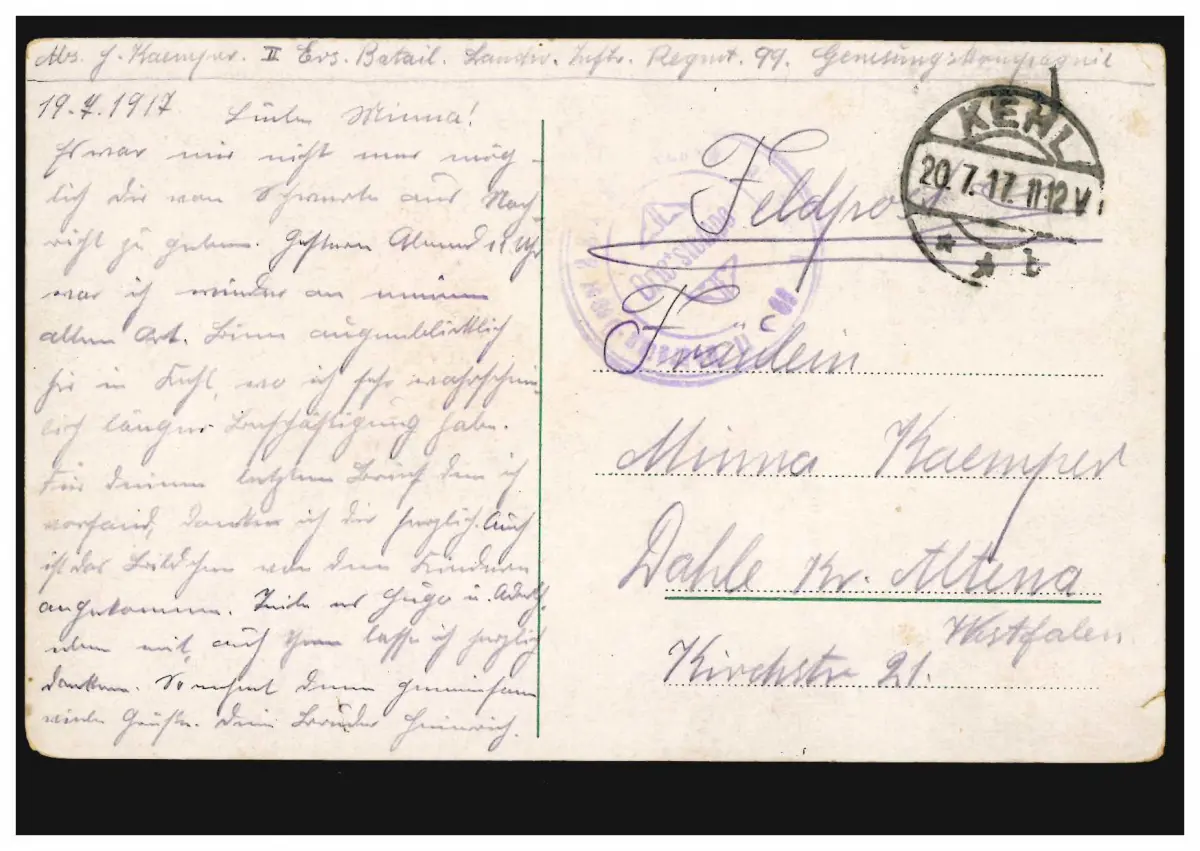 Abs. H. Kaemper. II Ers. Batail. Landw. Inftr. Regmt. 99. Genesungskompagnie
19.7.1917 Liebe Minna!
Es war mir nicht mehr mög-
lich Dir von Schwerte aus Nach-
richt zu geben. Gestern Abend 11 Uhr
war ich wieder an meinem
alten Ort. Bin augenblicklich
hir in Kehl, wo ich sehr wahrschein-
lich länger Beschäftigung habe.
Für deinen letzten Brief den ich
vorfand, danke ich dir herzlich. Auch
ist das Bildchen von den Kindern
angekommen. Teile es Hugo u. Adele
eben mit, auch Ihnen lasse ich herzlich
danken. So nehmt denn gemeinsam
viele Grüße. Dein Bruder Heinrich.
KEHL
20.7.17. 11-12 V.
Feldpost
Fräulein
Minna Kaemper
Dahle Kr. Altena
Westfalen
Kirchstr 21.